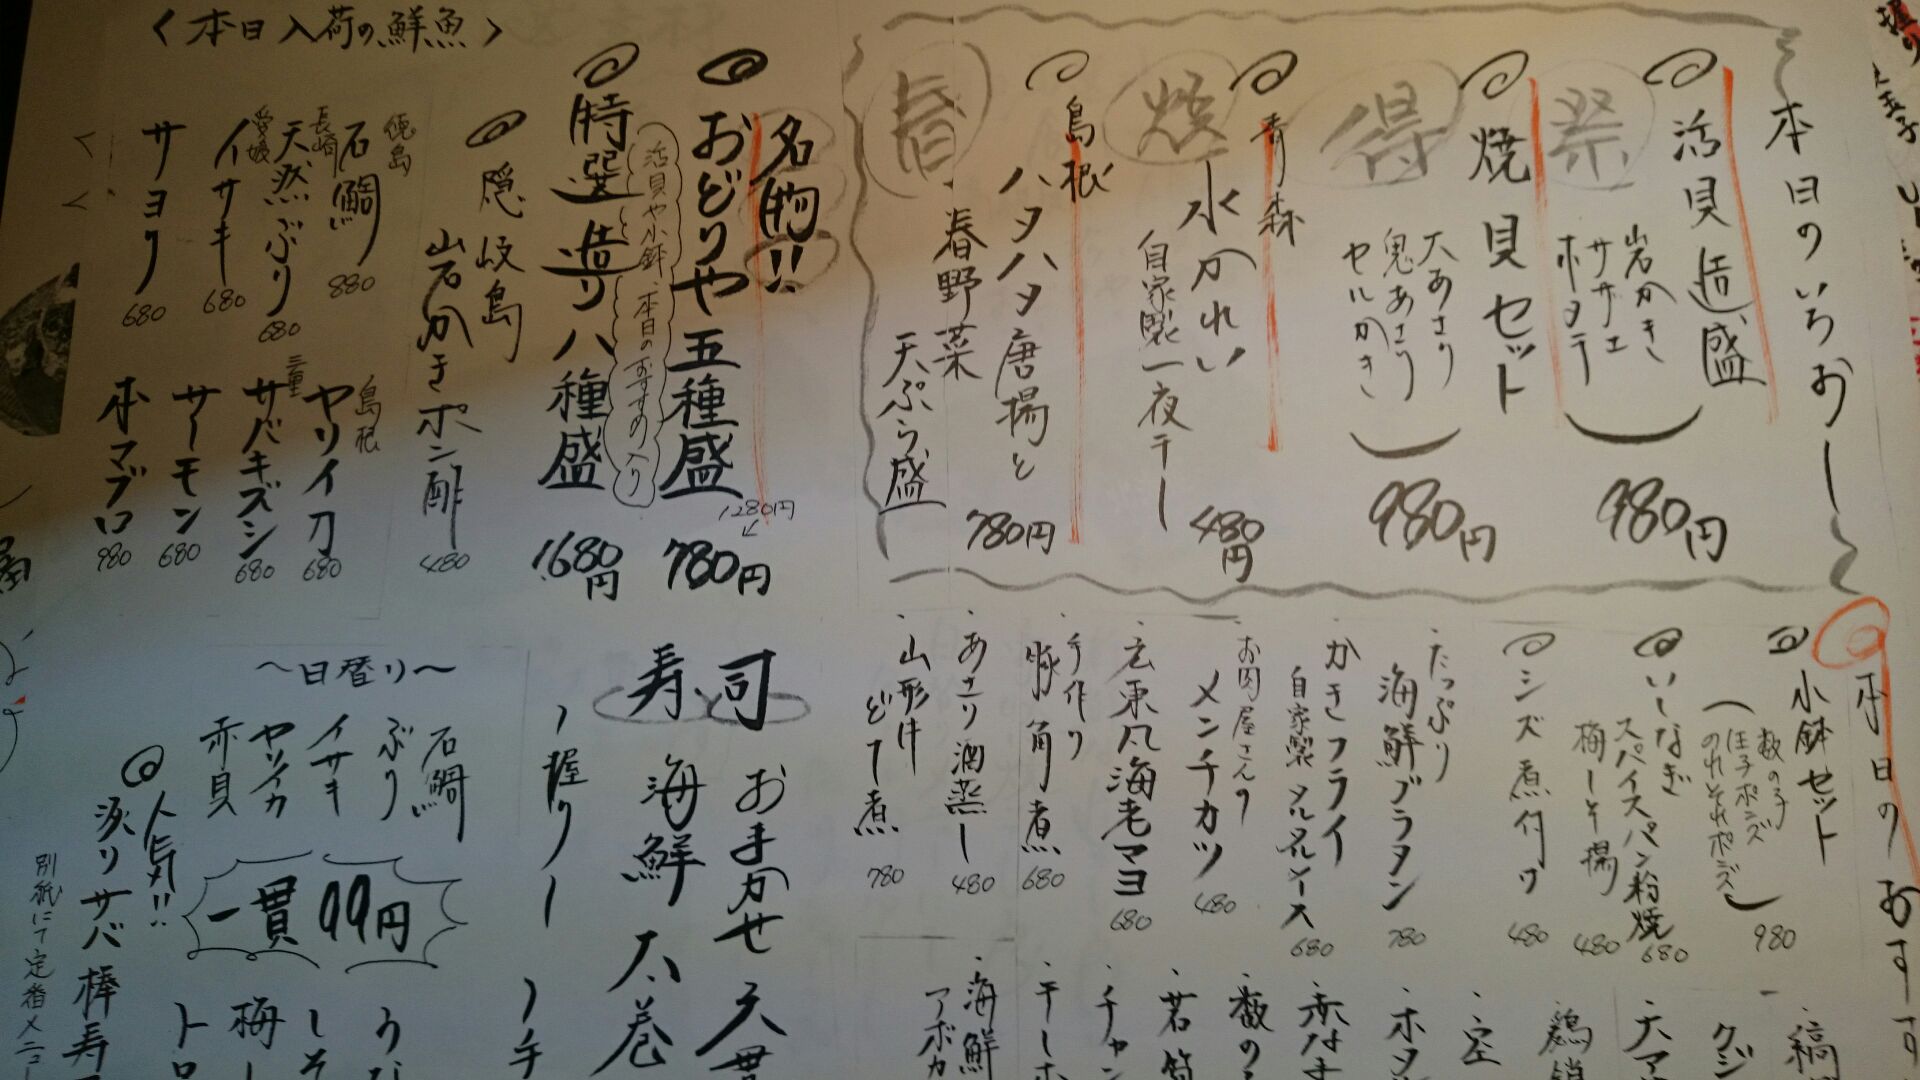 本日のいちおし
活貝造り盛
祭
岩かき
サザエ
ホタテ
980円
焼貝セット
得
大あさり
鬼あさり
セルかき
980円
青森
水かれい
焼
自家製一夜干し
480円
島根
ハタハタ唐揚と
春野菜
天ぷら盛
春
780円
名物!!
おどりや五種盛
1280円
780円
活貝や小鉢、本日のおすすめ入り
特選造り八種盛
1.680円
〈本日入荷の鮮魚〉
隠岐島
岩かきポン酢
480
徳島
石鯛
880
長崎
天然ぶり
680
愛媛
イサキ
680
サヨリ
680
島根
ヤリイカ
680
三重
サバキズシ
680
サーモン
680
本マグロ
980
本日のおすす
小鉢セット
数の子
のれそれポンズ
980
いしなぎ
スパイスパン粉焼
680
梅しそ揚
480
シズ煮付け
480
たっぷり
海鮮グラタン
780
かきフライ
自家製タルタルソース
680
お肉屋さんの
メンチカツ
480
広東風海老マヨ
680
手作り
豚角煮
680
あさり酒蒸し
480
山形牛
どて煮
780
寿司
おまかせ
海鮮太巻
握り
〜日替り〜
石鯛
ぶり
イサキ
ヤリイカ
赤貝
一貫99円
人気!!
炙りサバ棒寿
別紙にて定番メニュー
手
うな
しそ
梅し
トロ
海鮮
アボカ
チャン
若筍
数の
赤なま
ホタ
空
天マ
クジ
縞